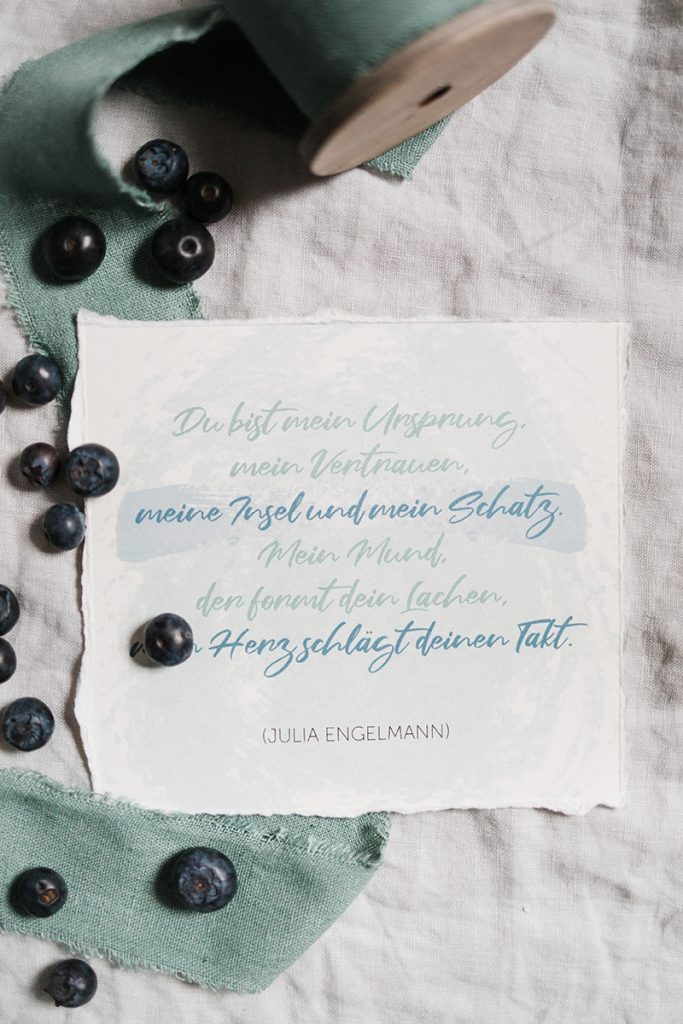 Du bist mein Ursprung,
mein Vertrauen,
meine Insel und mein Schatz.
Mein Mund,
der formt dein Lachen,
Herz schlägt deinen Takt.
(JULIA ENGELMANN)